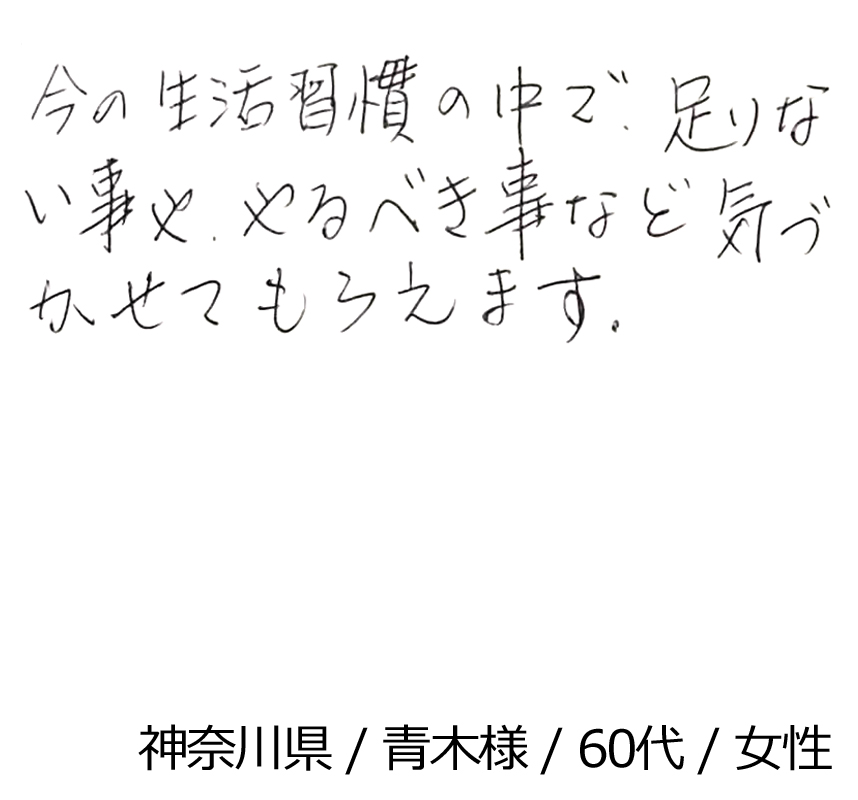 今の生活習慣の中で、足りな
い事や、やるべき事など気づ
かせてもらえます。
神奈川県 / 青木様 / 60代 / 女性